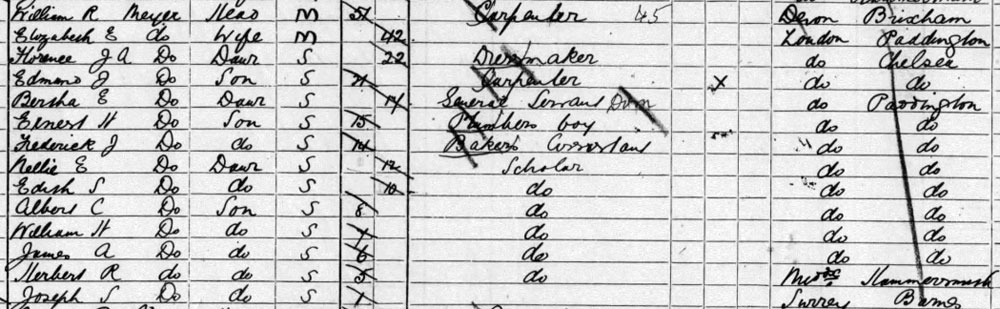 William R Meyer Head M 51 Carpenter 45 Devon Brixham
Elizabeth E do Wife M 42 London Paddington
Florence J A Do Daur S 22 Dressmaker do Chelsea
Edmund J Do Son S 21 Carpenter X do do
Bertha E Do Daur S 17 General Servant Dom do Paddington
Ernest H Do Son S 15 Plumbers boy do do
Frederick J Do do S 14 Bakers Assistant do do
Nellie E Do Daur S 12 Scholar do do
Edith S Do do S 10 do do do
Albert C Do Son S 8 do do do
William H Do do S do do do
James A Do do S 6 do do do
Herbert R do do S 5 do Hammersmith
Joseph S Do do S 1 Surrey Barnes